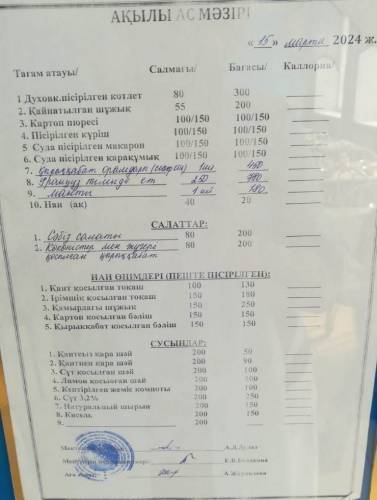 АҚЫЛЫ АС МӘЗІРІ
«15» марта 2024 ж.
Тағам атауы/ Салмағы/ Бағасы/ Каллория/
1 Духовк.пісірілген котлет 80 300
2. Қайнатылған шұжық 55 200
3. Картоп пюресі 100/150 100/150
4. Пісірілген күріш 100/150 100/150
5 Суда пісірілген макарон 100/150 100/150
6. Суда пісірілген қарақұмық 100/150 100/150
7. 1шт 450
8. ет 250
9. манты 1шт 180
10. Нан (ақ) 40 20
САЛАТТАР:
1. Сәбіз салаты 80 200
2. Көкөністер мен 80 200
қосылған
НАН ӨНІМДЕРІ (ПЕШТЕ ПІСІРІЛГЕН):
1. Қант қосылған тоқаш 100 130
2. Ірімшік қосылған тоқаш 150 180
3. Қамырдағы шұжық 150 250
4. Картоп қосылған бәліш 150 150
5. Қырыққабат қосылған бәліш 150 150
СУСЫНДАР:
1. Қантсыз қара шай 200 50
2. Қантпен қара шай 200 90
3. Сүт қосылған шай 200 100
4. Лимон қосылған шай 200
5. Кептірілген жеміс компоты 200 100
6. Сүт 3,2% 200 250
7. Натуральный шырын 200 200
8. Кисель 200 150
9. 200